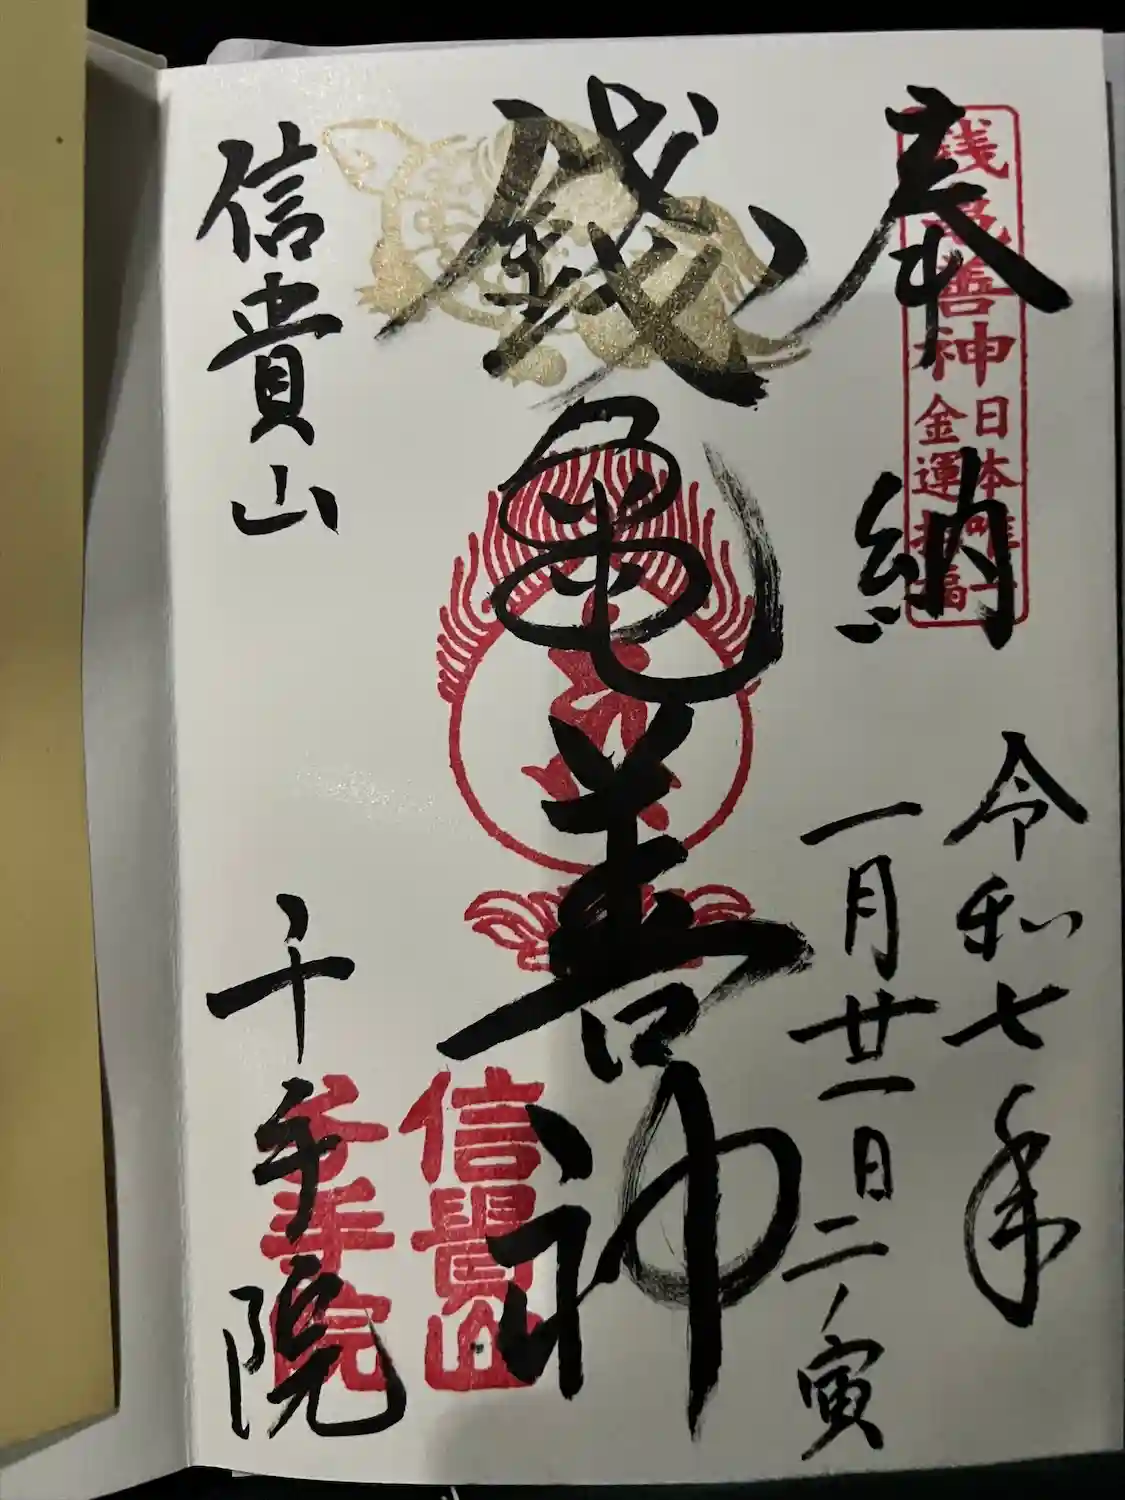 奉納
銭亀善神
日本唯一
金運招福
令和七年
一月廿一日二ノ寅
銭亀善神
信貴山
千手院
信貴山
千手院